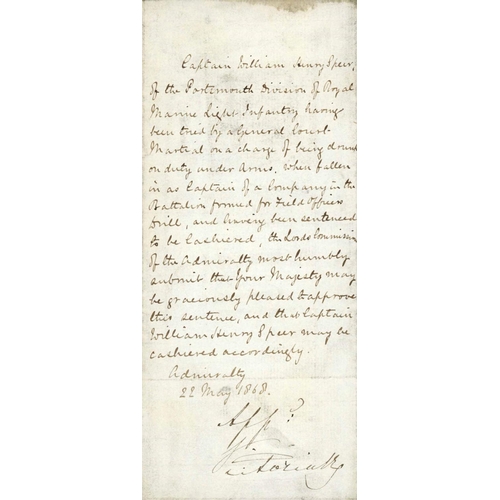 Captain William Henry Speer,
of the Portsmouth Division of Royal
Marine Light Infantry having
been tried by a General Court
Martial on a charge of being drunk
on duty under Arms, when fallen
in as Captain of a Company in the
Battalion formed for Field Officers
Drill, and having been sentenced
to be Cashiered, the Lords Commissio
of the Admiralty most humbly
submit that Your Majesty may
be graciously pleased to approve
this sentence, and that Captain
William Henry Speer may be
cashiered accordingly.
Admiralty
22 May 1868.
App.d
Victoria R